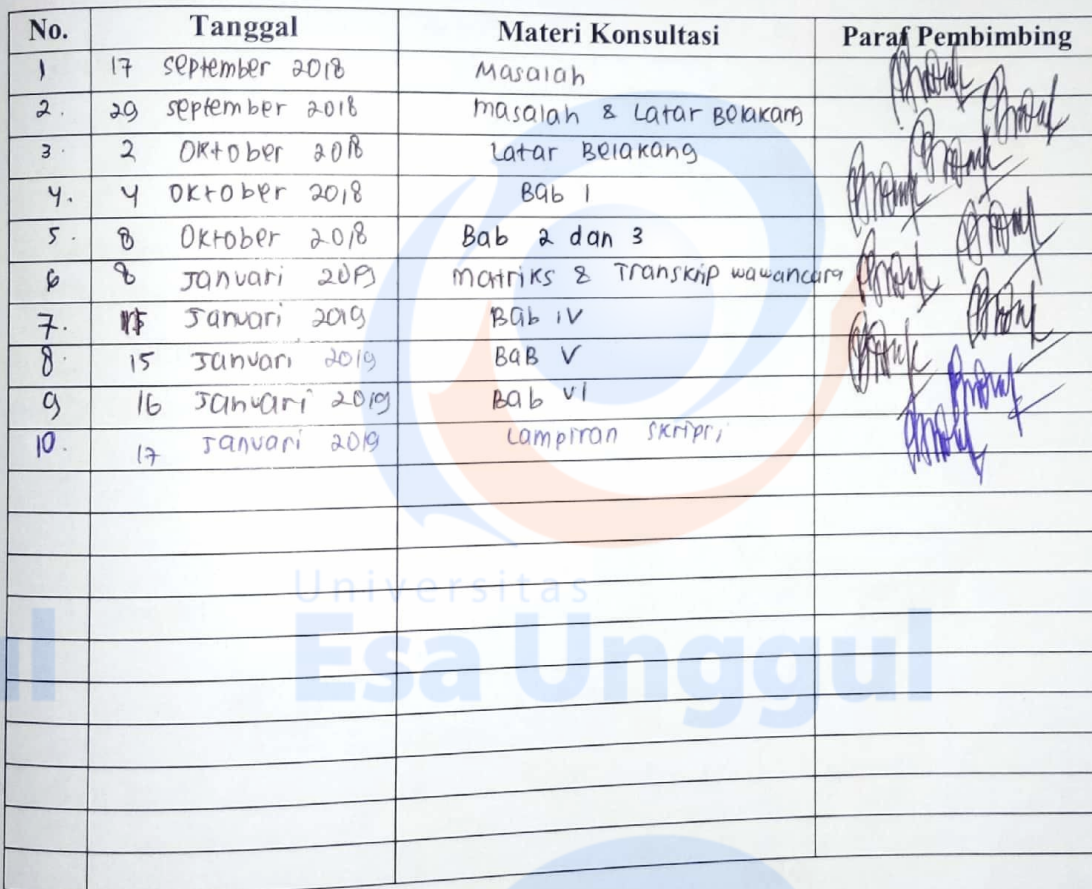 No. Tanggal Materi Konsultasi Paraf Pembimbing
1 17 September 2018 Masalah
2. 29 september 2018 masalah & Latar Belakang
3. 2 Oktober 2018 Latar Belakang
4. 4 Oktober 2018 Bab 1
5. 8 Oktober 2018 Bab 2 dan 3
6 8 Januari 2019 Matriks & Transkrip wawancara
7. Januari 2019 Bab IV
8. 15 Januari 2019 BaB V
9 16 Januari 2019 Bab VI
10. 17 Januari 2019 Lampiran Skripsi
Universitas
Esa Unggul
ul